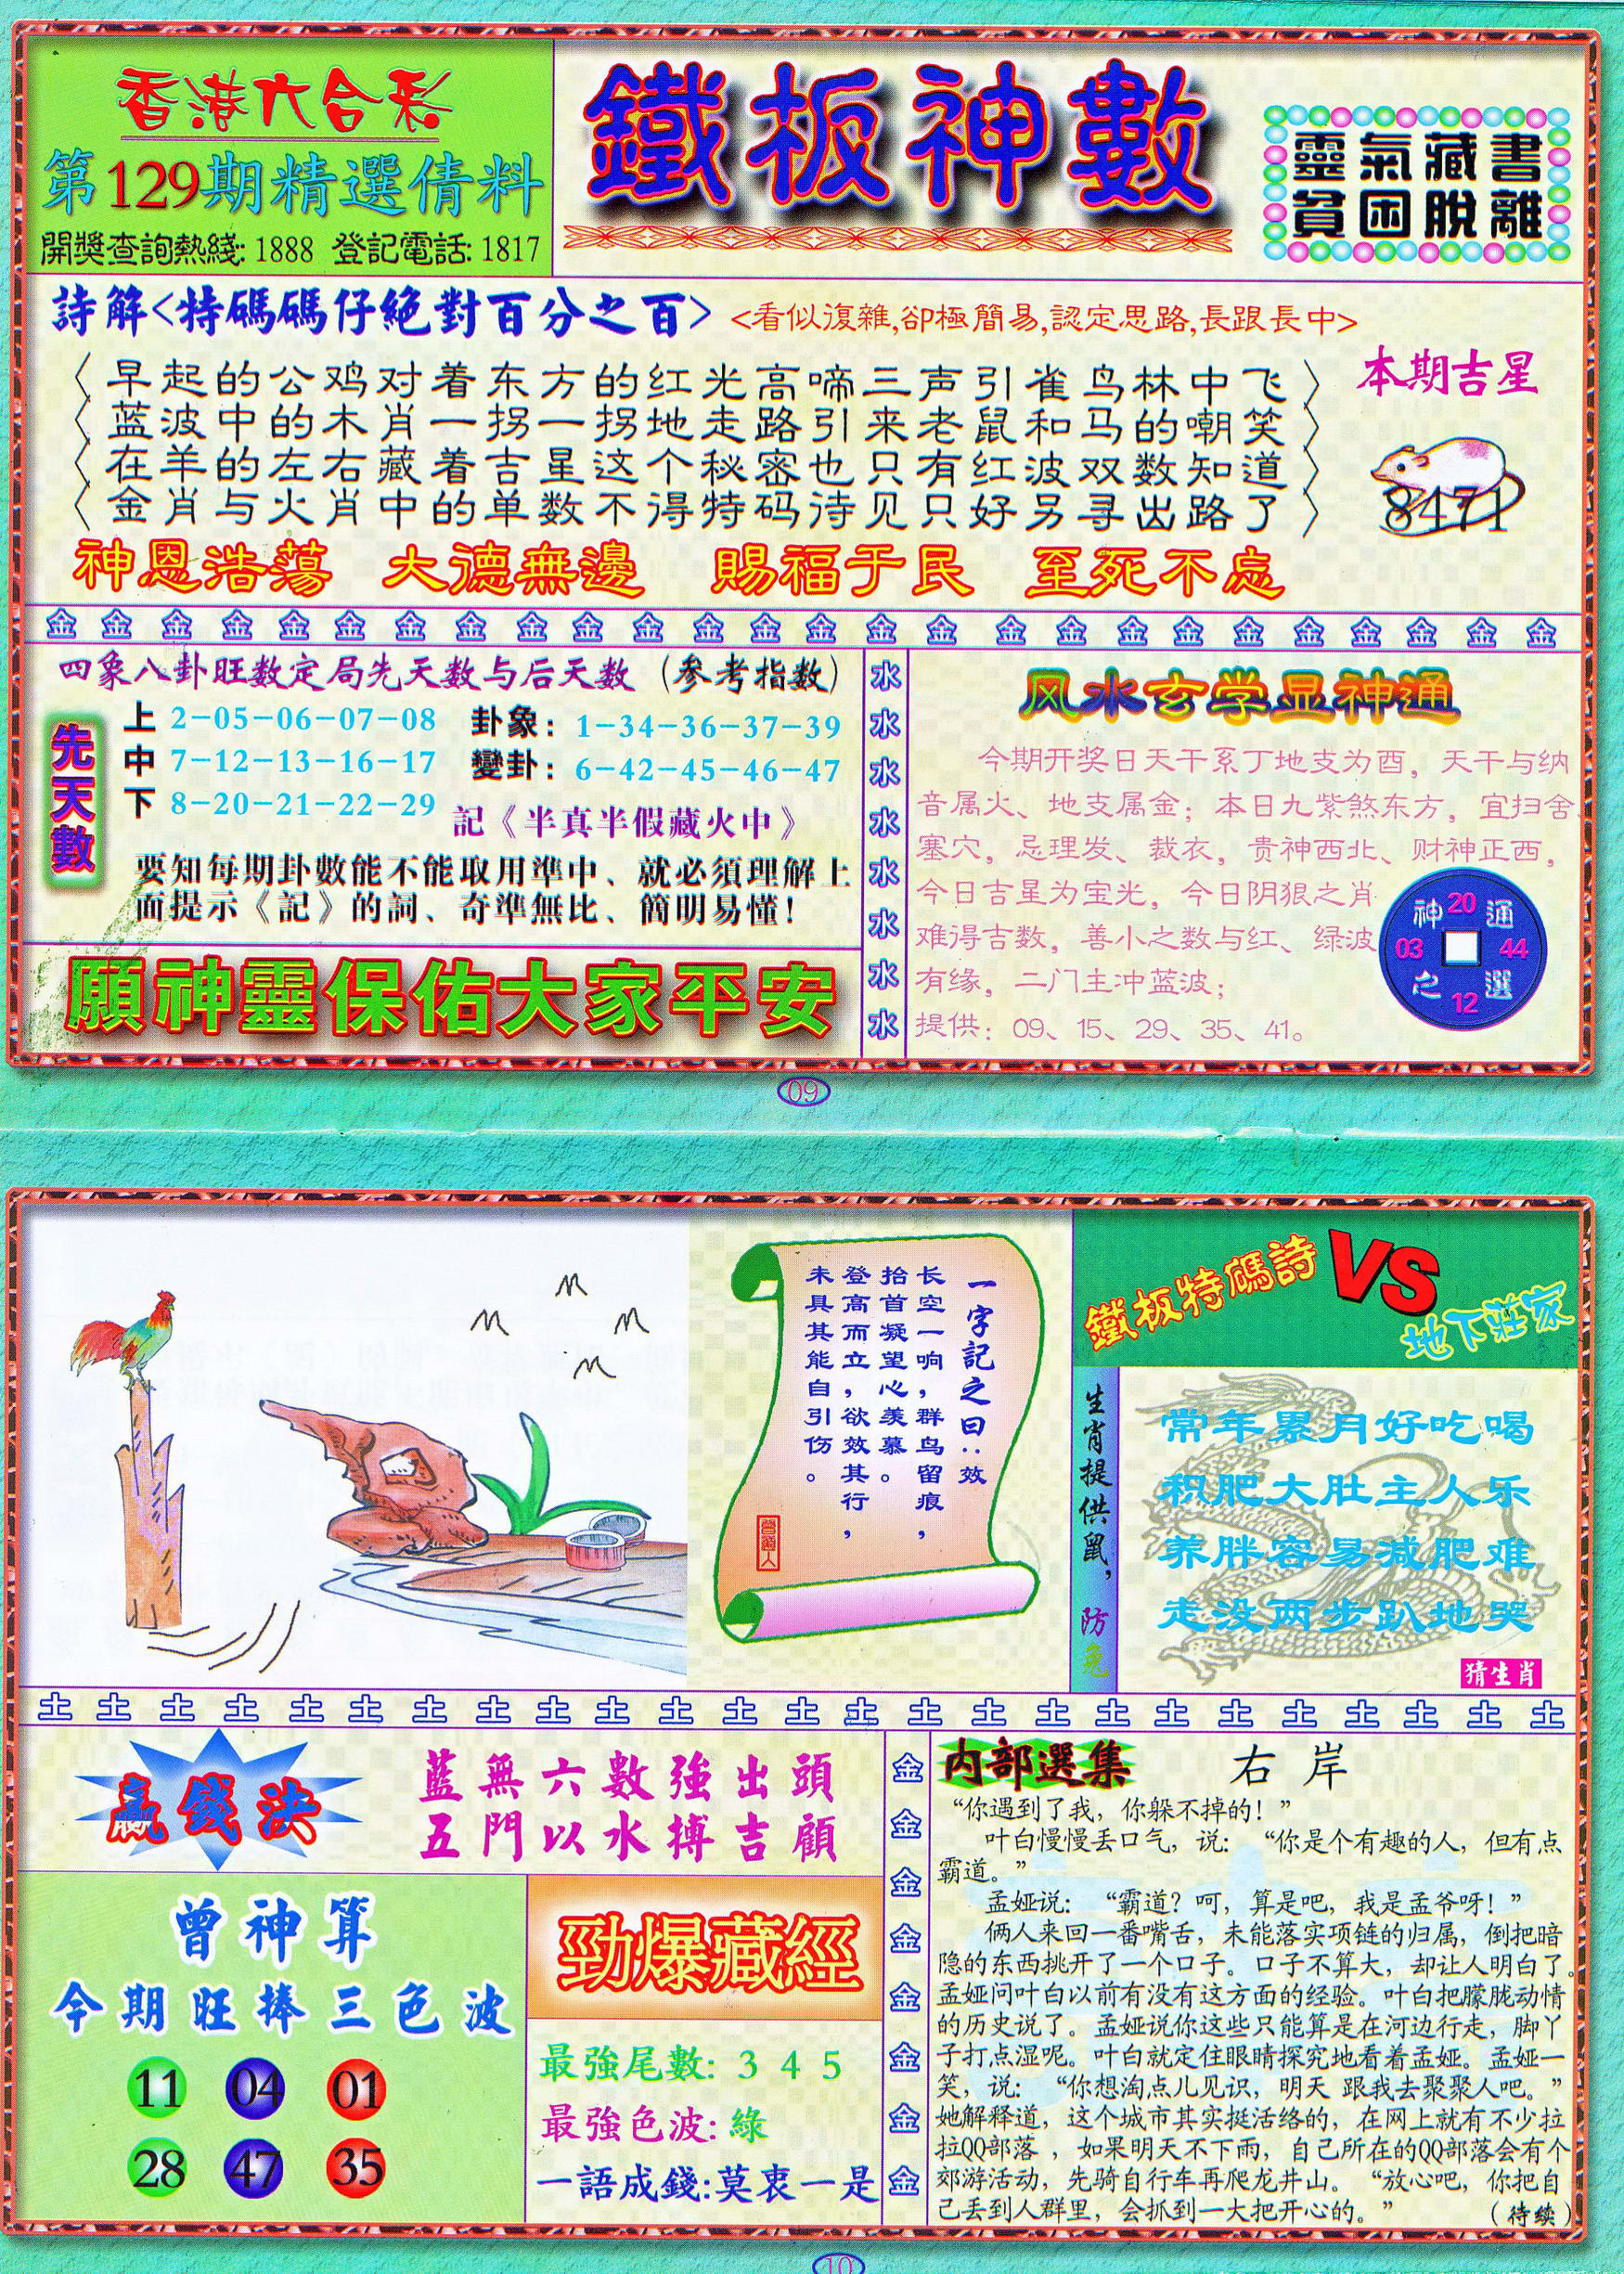 香港六合彩
第129期精選倩料
開獎查詢熱綫: 1888 登記電話: 1817
鐵板神數
靈氣藏書
貧困脫離
詩解<特碼碼仔絕對百分之百> <看似復雜,卻極簡易,認定思路,長跟長中>
早起的公鸡对着东方的红光高啼三声引雀鸟林中飞
蓝波中的木肖一拐一拐地走路引来老鼠和马的嘲笑
在羊的左右藏着吉星这个秘密也只有红波双数知道
金肖与火肖中的单数不得特码待见只好另寻出路了
本期吉星
8471
神恩浩蕩 大德無邊 賜福于民 至死不忘
金 金 金 金 金 金 金 金 金 金 金 金 金 金 金 金 金 金 金 金 金 金 金 金 金 金
四象八卦旺数定局先天数与后天数（参考指数）
先天數
上 2-05-06-07-08 卦象：1-34-36-37-39
中 7-12-13-16-17 變卦：6-42-45-46-47
下 8-20-21-22-29 記《半真半假藏火中》
要知每期卦數能不能取用準中、就必須理解上
面提示《記》的詞、奇準無比、簡明易懂！
願神靈保佑大家平安
水
水
水
水
水
水
水
水
风水玄学显神通
今期开奖日天干系丁地支为酉，天干与纳
音属火、地支属金；本日九紫煞东方，宜扫舍、
塞穴，忌理发、裁衣，贵神西北、财神正西，
今日吉星为宝光，今日阴狠之肖
难得吉数，善小之数与红、绿波
有缘，二门主冲蓝波；
提供：09、15、29、35、41。
神 20 通
03 44
之 12 選
09
一字記之曰：效
长空一响，群鸟留痕，
抬首凝望心羡慕。
登高而立，欲效其行，
未具其能自引伤。
鐵板特碼詩
VS
地下莊家
生肖提供鼠，防兔
常年累月好吃喝
积肥大肚主人乐
养胖容易减肥难
走没两步趴地哭
猜生肖
土 土 土 土 土 土 土 土 土 土 土 土 土 土 土 土 土 土 土 土 土 土 土 土 土
贏錢決
藍無六數強出頭
五門以水搏吉顧
曾神算
今期旺捧三色波
11 04 01
28 47 35
勁爆藏經
最強尾數: 3 4 5
最強色波: 綠
一語成錢:莫衷一是
金
金
金
金
金
金
金
金
内部選集 右岸
“你遇到了我，你躲不掉的！”
叶白慢慢丢口气，说：“你是个有趣的人，但有点
霸道。”
孟娅说：“霸道？呵，算是吧，我是孟爷呀！”
俩人来回一番嘴舌，未能落实项链的归属，倒把暗
隐的东西挑开了一个口子。口子不算大，却让人明白了。
孟娅问叶白以前有没有这方面的经验。叶白把朦胧动情
的历史说了。孟娅说你这些只能算是在河边行走，脚丫
子打点湿呢。叶白就定住眼睛探究地看着孟娅。孟娅一
笑，说：“你想淘点儿见识，明天 跟我去聚聚人吧。”
她解释道，这个城市其实挺活络的，在网上就有不少拉
拉QQ部落，如果明天不下雨，自己所在的QQ部落会有个
郊游活动，先骑自行车再爬龙井山。“放心吧，你把自
己丢到人群里，会抓到一大把开心的。”
（待续）
10